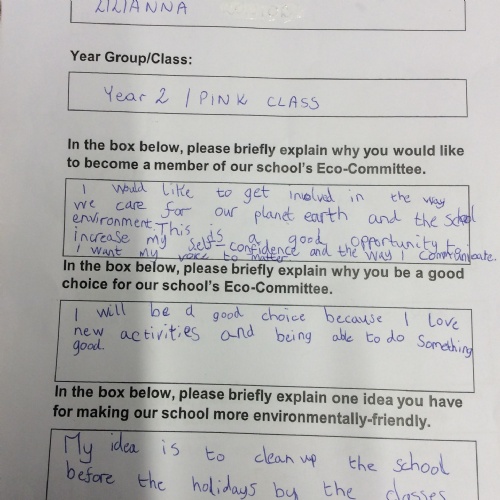 LILIANNA
Year Group/Class:
Year 2 / PINK CLASS
In the box below, please briefly explain why you would like
to become a member of our school's Eco-Committee.
I would like to get involved in the way
we care for our planet earth and the school
environment. This is a good opportunity to
increase my self confidence and the way I communicate.
I want my voice to matter
In the box below, please briefly explain why you be a good
choice for our school's Eco-Committee.
I will be a good choice because I love
new activities and being able to do something
good.
In the box below, please briefly explain one idea you have
for making our school more environmentally-friendly.
My idea is to clean up the school
before the holidays by the classes